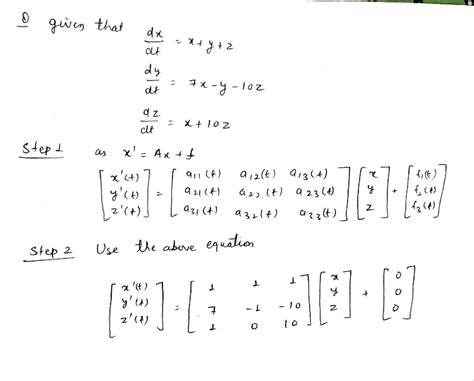 ① given that
dx/dt = x + y + z
dy/dt = 7x - y - 10z
dz/dt = x + 10z
Step 1 as x' = Ax + f
[x'(t) y'(t) z'(t)] = [a11(t) a12(t) a13(t); a21(t) a22(t) a23(t); a31(t) a32(t) a33(t)] [x y z] + [f1(t) f2(t) f3(t)]
Step 2 Use the above equation
[x'(t) y'(t) z'(t)] = [1 1 1; 7 -1 -10; 1 0 10] [x y z] + [0 0 0]